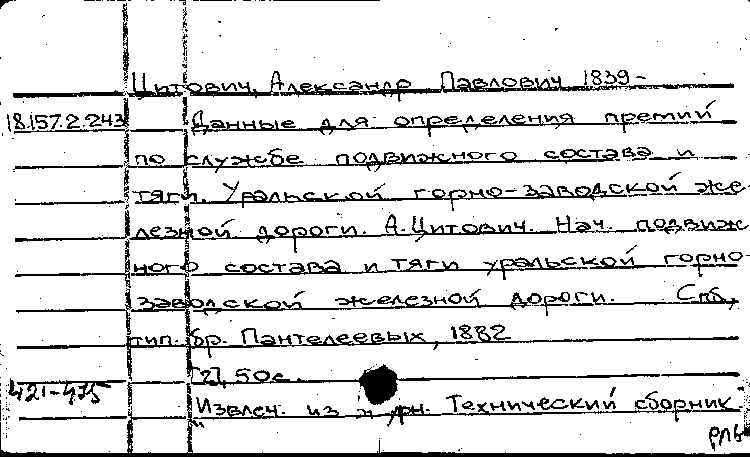 Цитович, Александр Павлович 1839-
18.157.2.243 Данные для определения премий
по службе подвижного состава и
тяги. Уральской горно-заводской же
лезной дороги. А. Цитович. Нач. подвиж
ного состава и тяги уральской горно-
заводской железной дороги. Спб,
тип. бр. Пантелеевых, 1882
[2], 50с.
421-475
"Извлеч. из журн. Технический сборник"
РПБ